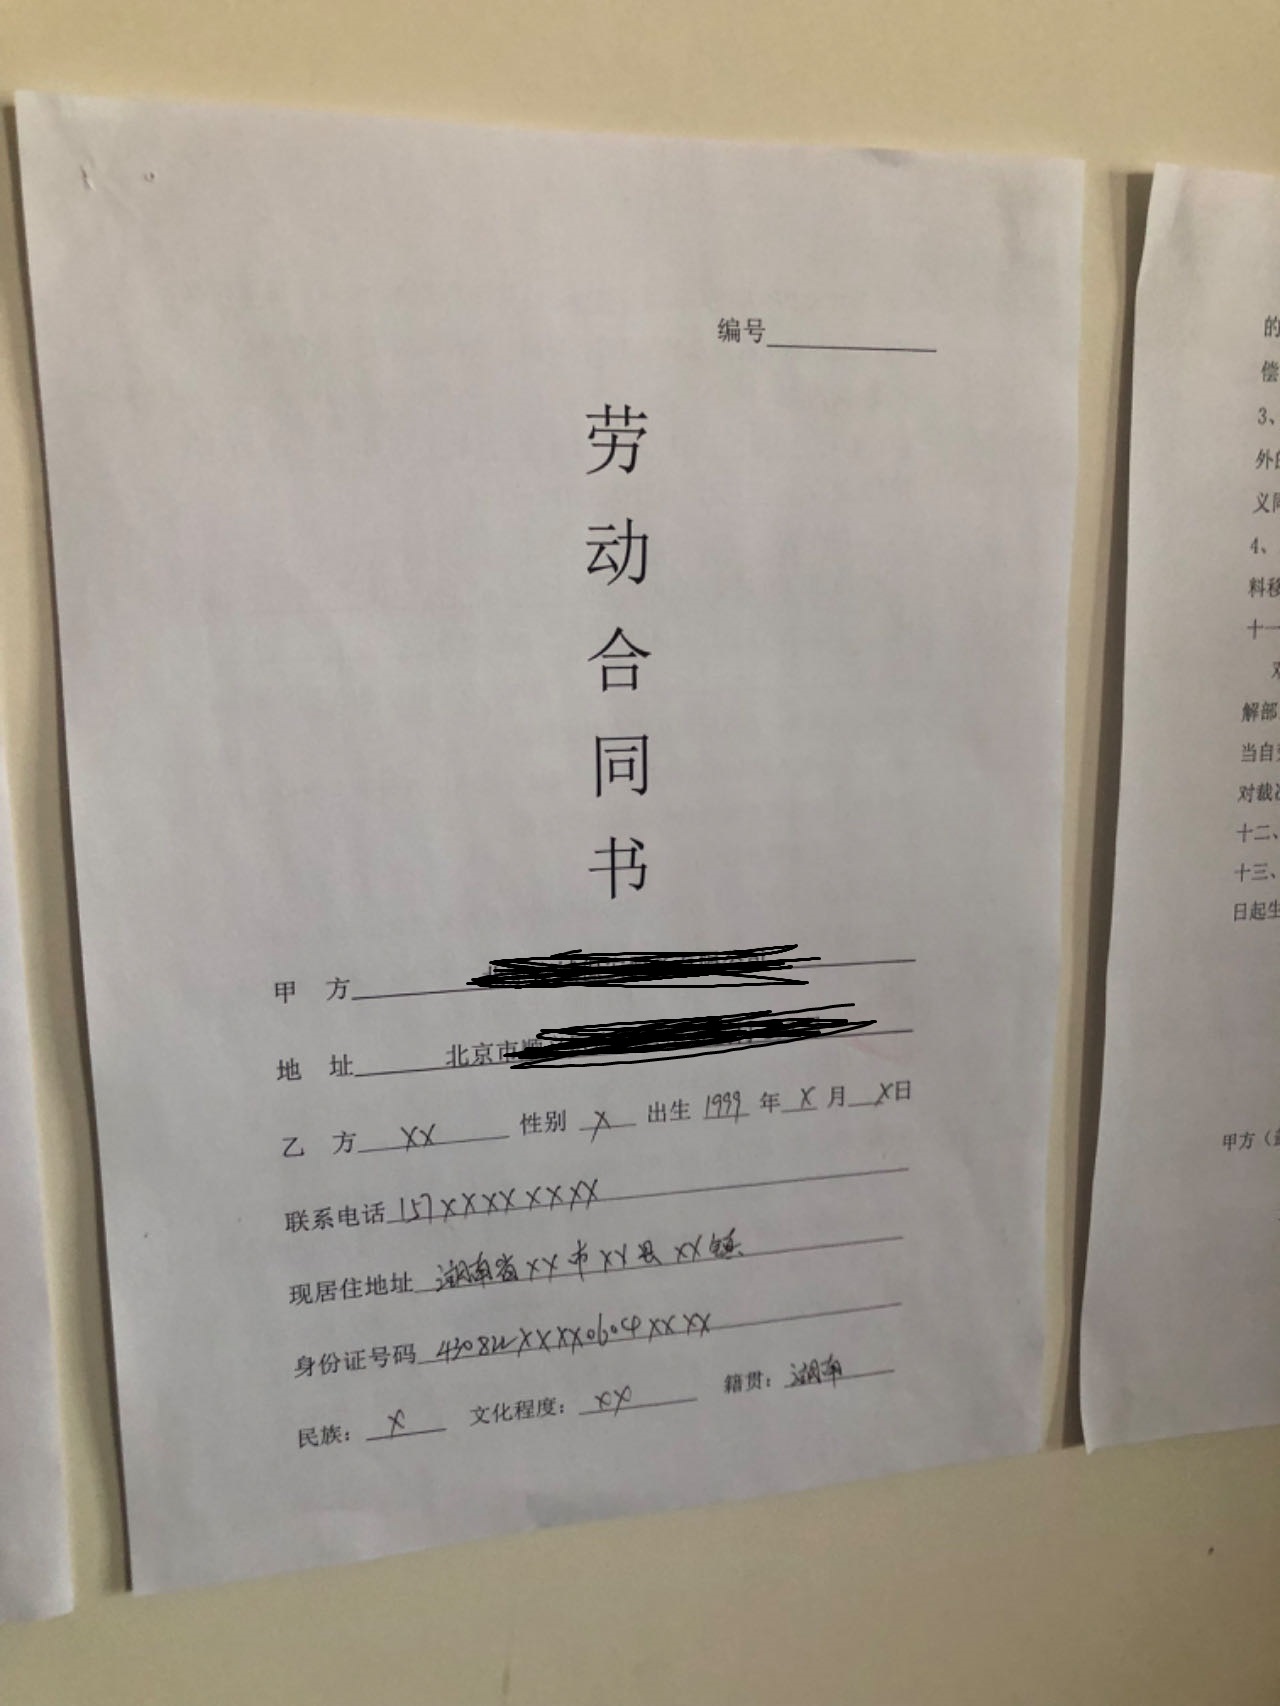 编号
劳
动
合
同
书
甲 方
地 址 北京市顺
乙 方 XX 性别 X 出生 1999 年 X 月 X 日
联系电话 157XXXXXXXX
现居住地址 湖南省XX市XX县XX镇
身份证号码 430822XXXX0604XXXX
民族: X 文化程度: XX 籍贯: 湖南
的
偿
3、
外
义
4、
料移
十一
解部
当自
对裁
十二、
十三、
日起生
甲方(